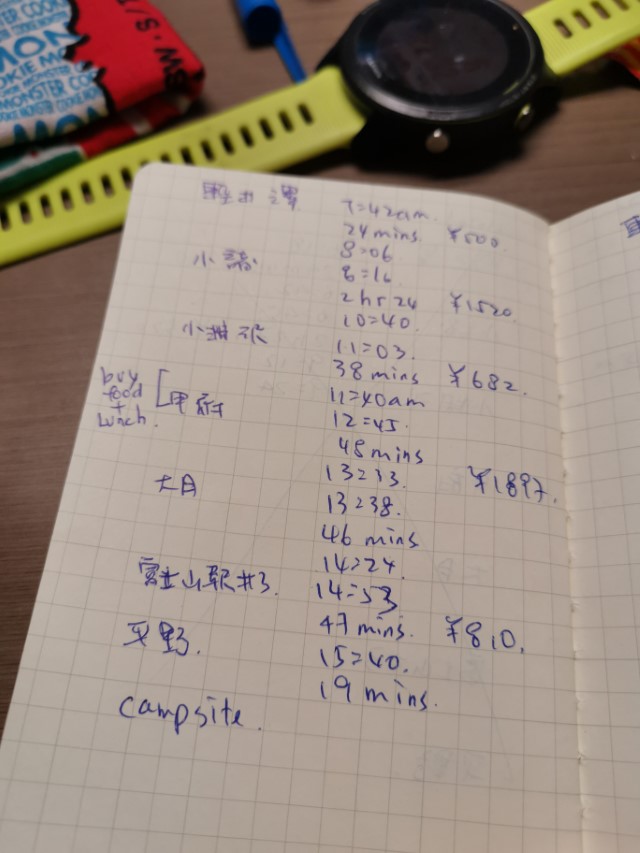 MONSTER COO
MON
OKIE M
MONSTER CO
MON
SW.S/T
軽井澤 7=42am.
24 mins. ¥500
8=06
小諸
8=16
2hr 24 ¥1520
10=40.
小淵沢
11=03.
38 mins ¥682.
buy
food
+
lunch.
甲府
11=40am
12=45.
48 mins
13=33. ¥1897.
大月
13=38.
46 mins
14=24.
富士山駅#3. 14=53
47 mins. ¥810.
平野. 15=40.
19 mins.
campsite.